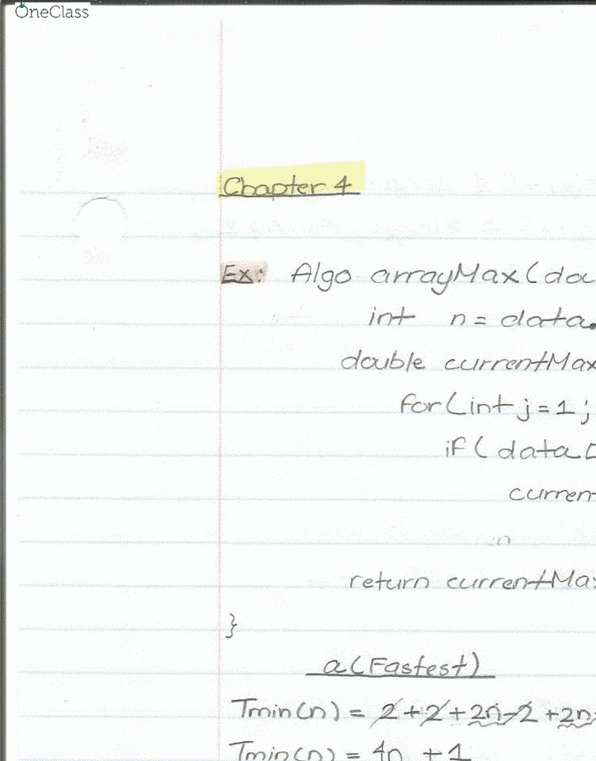 OneClass
Chapter 4
Ex: Algo arrayMax(dou
int n = data.
double currentMax
for(int j = 1;
if( data[
curren
return currentMax
}
a(Fastest)
Tmin(n) = 2 + 2 + 2n - 2 + 2n
Tmin(n) = 4n + 1